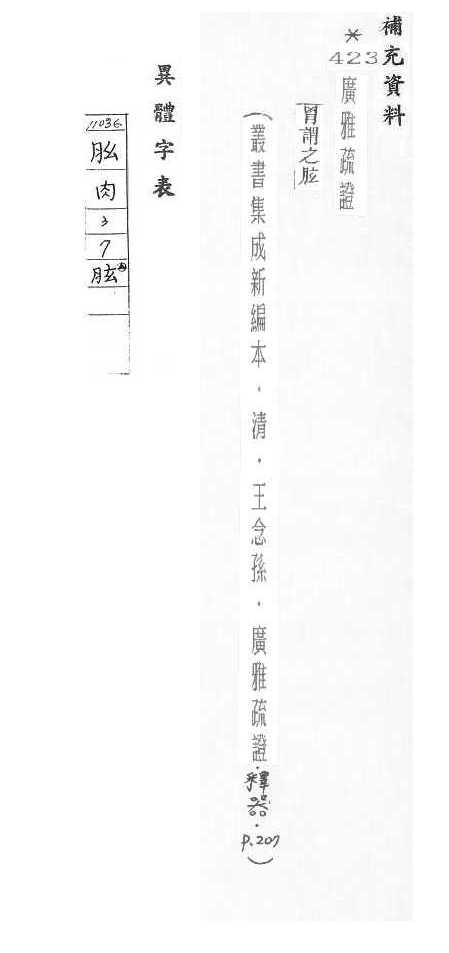 補充資料
*
423
廣雅疏證
胃謂之胘
(叢書集成新編本.清.王念孫.廣雅疏證.釋器.p.207)
異體字表
11036
肉
3
7
胘